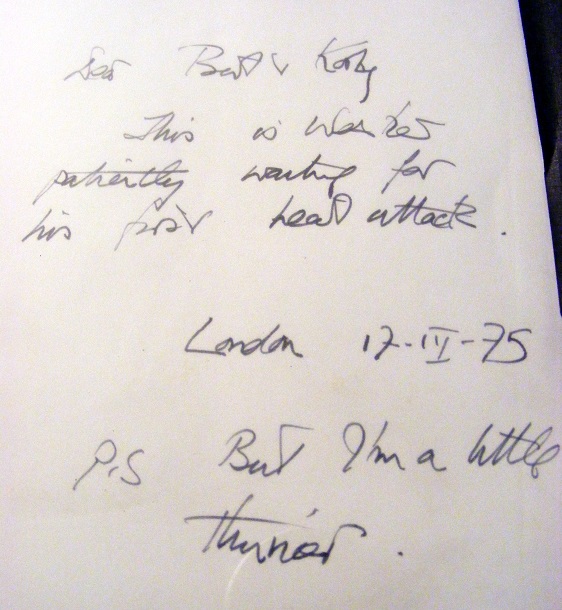 Dear Bert & Kathy
This is
patiently waiting for
his first heart attack.
London 17-IV-75
P.S But I'm a little
thinner.